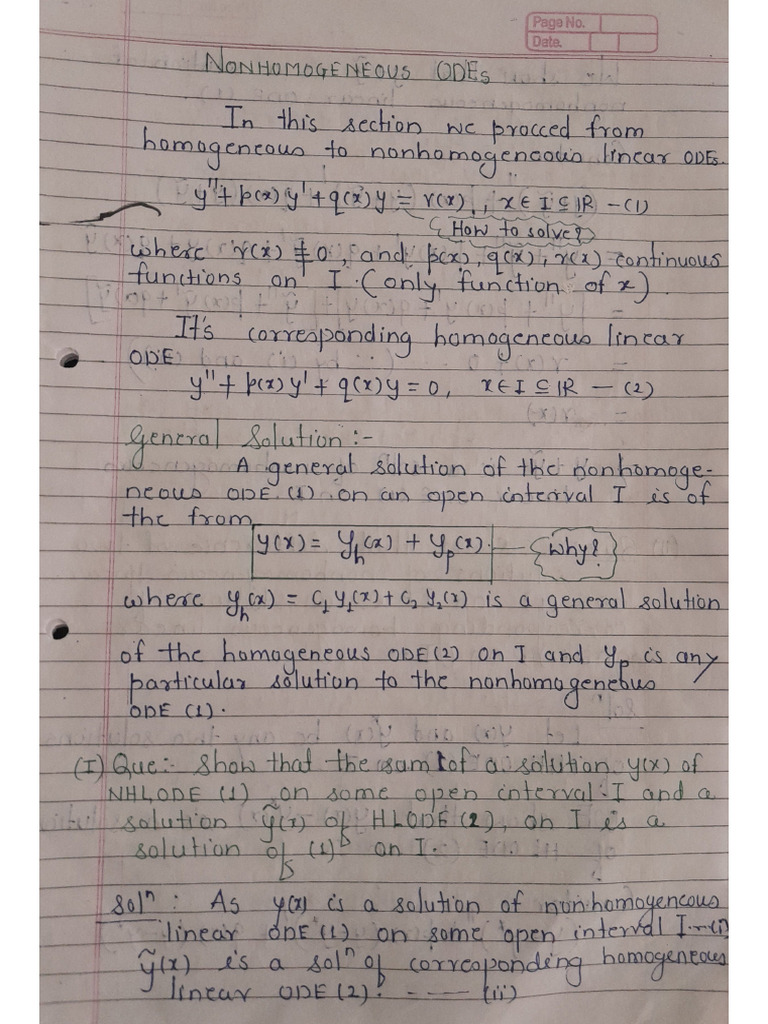 Page No.
Date.
NONHOMOGENEOUS ODEs
In this section we procced from
homogeneous to nonhomogeneous linear ODEs.
y'' + p(x) y' + q(x) y = r(x), x ∈ I ⊆ IR - (1)
How to solve?
where r(x) ≢ 0, and p(x), q(x), r(x) continuous
functions on I. (only function of x).
It's corresponding homogeneous linear
ODE
y'' + p(x) y' + q(x) y = 0, x ∈ I ⊆ IR - (2)
General Solution :-
A general solution of the nonhomoge-
neous ODE (1) on an open interval I is of
the from
y(x) = y_h(x) + y_p(x). - Why?
where y_h(x) = C_1 y_1(x) + C_2 y_2(x) is a general solution
of the homogeneous ODE (2) on I and y_p is any
particular solution to the nonhomogeneous
ODE (1).
(I) Que:- Show that the sum of a solution y(x) of
NHLODE (1) on some open interval I and a
solution ỹ(x) of HLODE (2), on I is a
solution of (1) on I.
Solⁿ : As y(x) is a solution of nonhomogeneous
linear ODE (1) on some open interval I -- (i)
ỹ(x) is a solⁿ of corresponding homogeneous
linear ODE (2). ---- (ii)